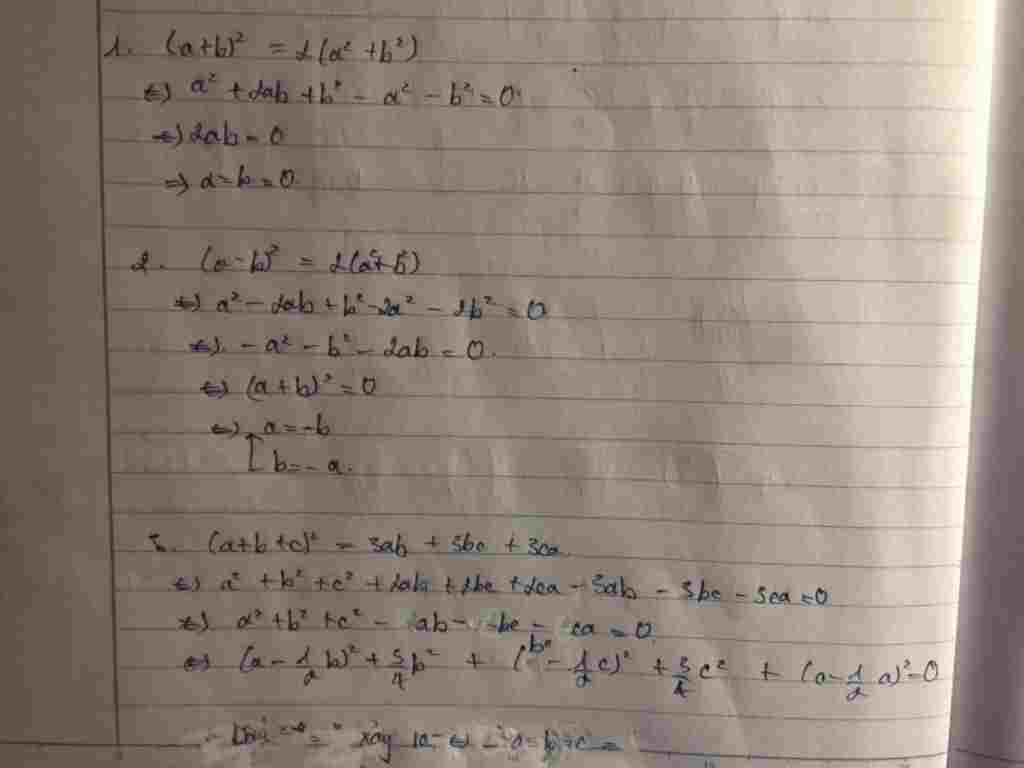 1. (a+b)² = 2(a² + b²)
⇔ a² + 2ab + b² - a² - b² = 0
⇔ 2ab = 0
⇒ a = b = 0
2. (a-b)² = 2(a²+b²)
⇔ a² - 2ab + b² - 2a² - 2b² = 0
⇔ - a² - b² - 2ab = 0.
⇔ (a + b)² = 0
⇔ a = -b
b = - a.
3. (a+b+c)² = 3ab + 3bc + 3ca
⇔ a² + b² + c² + 2ab + 2bc + 2ca - 3ab - 3bc - 3ca = 0
⇔ a² + b² + c² - ab - bc - ca = 0
⇔ (a - 1/2 b)² + 3/4 b² + (b - 1/2 c)² + 3/4 c² + (c - 1/2 a)² = 0
"=" xảy ra ⇔ a = b = c =